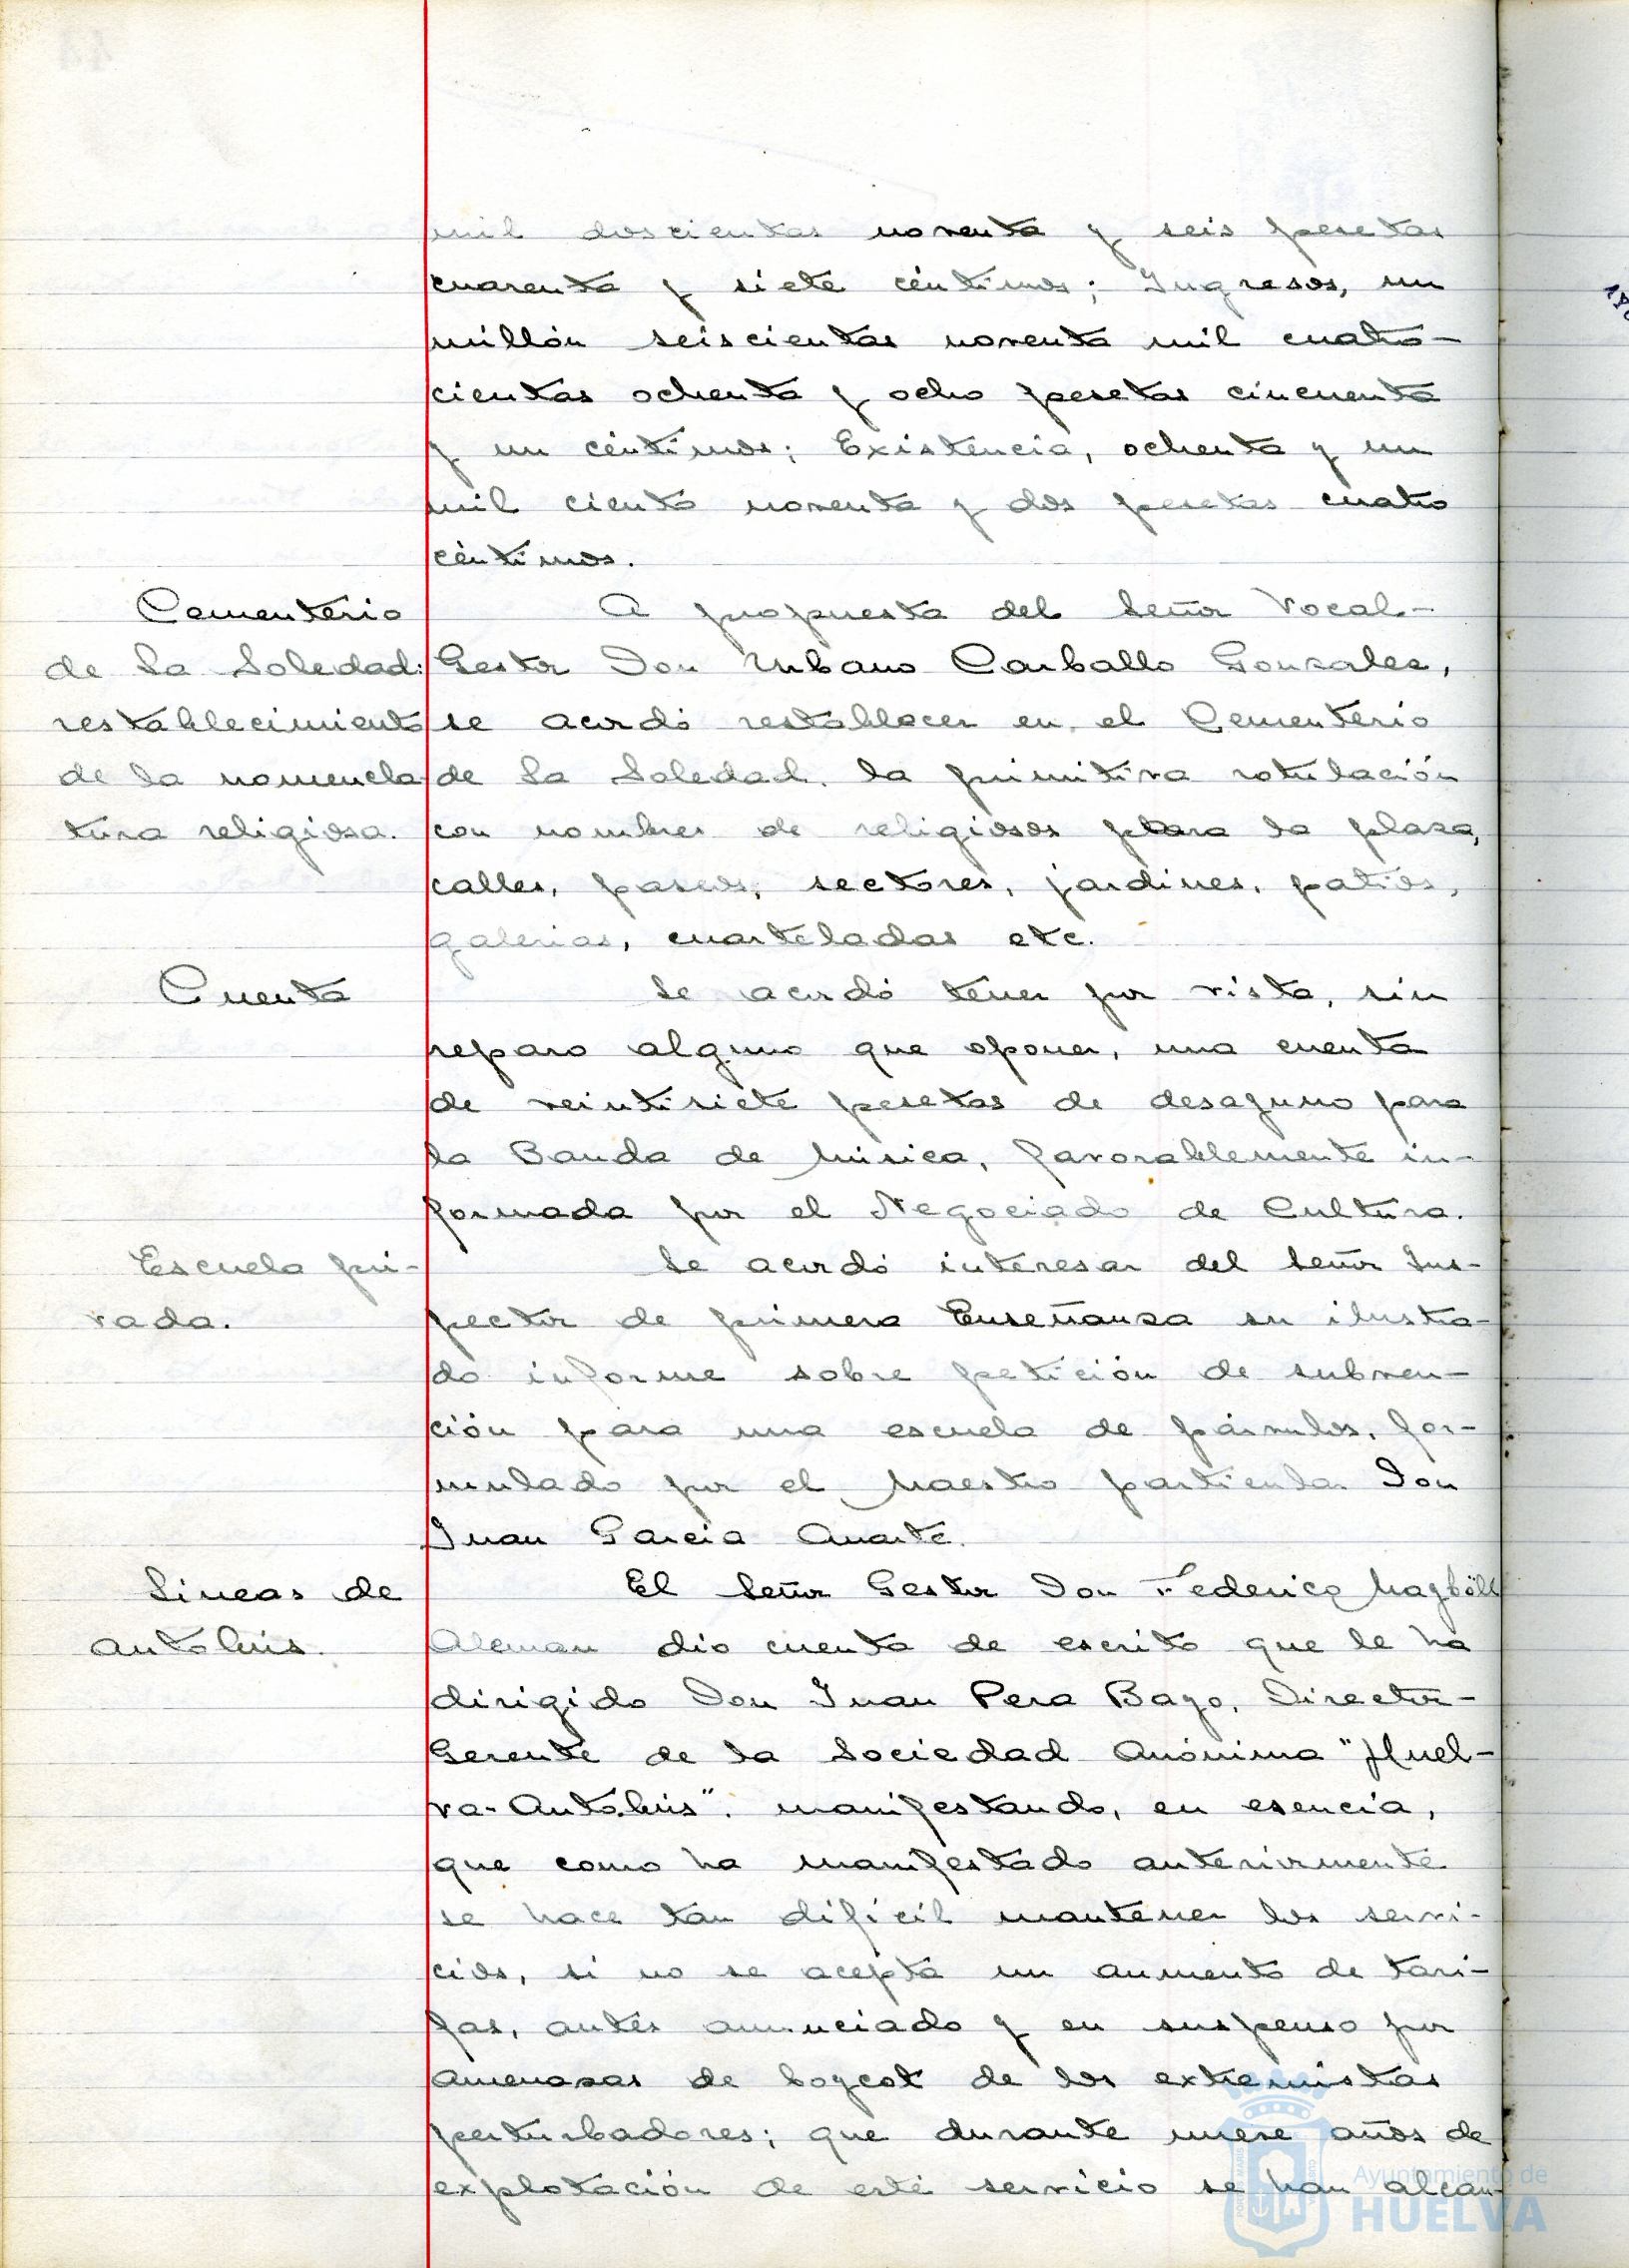 mil doscientas noventa y seis pesetas
cuarenta y siete céntimos; Ingresos, un
millón seiscientas noventa mil cuatro-
cientas ochenta y ocho pesetas cincuenta
y un céntimos; Existencia, ochenta y un
mil ciento noventa y dos pesetas cuatro
céntimos.
Cementerio
de La Soledad:
restablecimiento
de la nomencla-
tura religiosa.
A propuesta del Señor Vocal-
Gestor Don Urbano Carballo Gonzalez,
se acordó restablecer en el Cementerio
de La Soledad, la primitiva rotulación
con nombres de religiosos para la plaza,
calles, paseos, sectores, jardines, patios,
galerias, cuarteladas etc.
Cuenta
Se acordó tener por vista, sin
reparo alguno que oponer, una cuenta
de veintisiete pesetas de desayuno para
la Banda de Música, favorablemente in-
formada por el Negociado de Cultura.
Escuela pri-
vada.
Se acordó interesar del Señor Ins-
pector de primera Enseñanza su ilustra-
do informe sobre petición de subven-
ción para una escuela de párvulos, for-
mulado por el Maestro particular Don
Juan Garcia Duarte.
Lineas de
autobús.
El Señor Gestor Don Federico
Aleman dió cuenta de escrito que le ha
dirigido Don Juan Pera Bayo, Director-
Gerente de la Sociedad Anónima "Huel-
va-Autobús", manifestando, en esencia,
que como ha manifestado anteriormente
se hace tan dificil mantener los servi-
cios, si no se acepta un aumento de tari-
fas, antes anunciado y en suspenso por
amenazas de boycot de los extremistas
perturbadores; que durante nueve años de
explotación de este servicio se han alcan-
Ayuntamiento de
HUELVA